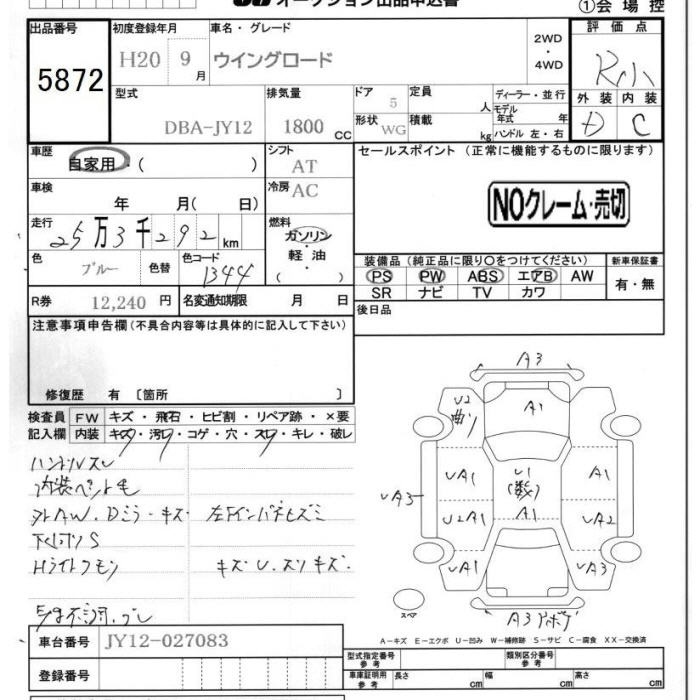 オークション出品申込書
①会場控
出品番号
5872
初度登録年月
H20 9月
車名・グレード
ウイングロード
2WD
・
4WD
評価点
R
外装 内装
D C
型式
DBA-JY12
排気量
1800 CC
ドア 5
形状 WG
定員 人
積載 kg
ディーラー・並行
モデル年式 年
ハンドル 左・右
車歴
自家用・( )
シフト
AT
車検
年 月( 日)
冷房
AC
走行
25万3千292km
燃料
ガソリン
軽油
( )
色
ブルー 色替
色コード
1344
R券 12,240円
名変通知期限 月 日
セールスポイント (正常に機能するものに限ります)
NOクレーム・売切
装備品 (純正品に限り○をつけてください)
PS PW ABS エアB AW
SR ナビ TV カワ
新車保証書
有・無
後日品
注意事項申告欄(不具合内容等は具体的に記入して下さい)
修復歴 有 〔箇所 〕
検査員記入欄
FW キズ・飛石・ヒビ割・リペア跡・×要
内装 キズ・汚レ・コゲ・穴・スレ・キレ・破レ
ハンドルスレ
内装ペント毛
外AW.Dミラーキズ
下回りS
Hライトクモリ
キズU.スリキズ.
A3
A1
U2
曲り
UA1
U1
(数)
A1
UA3
U2A1
A1
UA2
UA1
UA3
スペア
A3
A-キズ E-エクボ U-凹み W-補修跡 S-サビ C-腐食 XX-交換済
車台番号 JY12-027083
登録番号
型式指定番号 参考
類別区分番号 参考
車庫証明用 参考
長さ cm 幅 cm 高さ cm